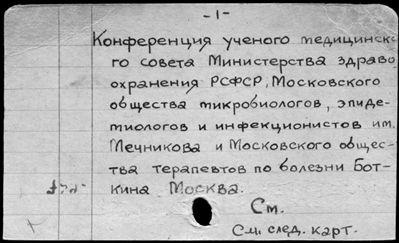 -1-
Конференция ученого медицинск
го совета Министерства здраво
охранения РСФСР, Московского
общества микробиологов, эпиде-
миологов и инфекционистов им.
Мечникова и Московского общес-
тва терапевтов по болезни Бот-
кина Москва.
См.
См. след. карт.